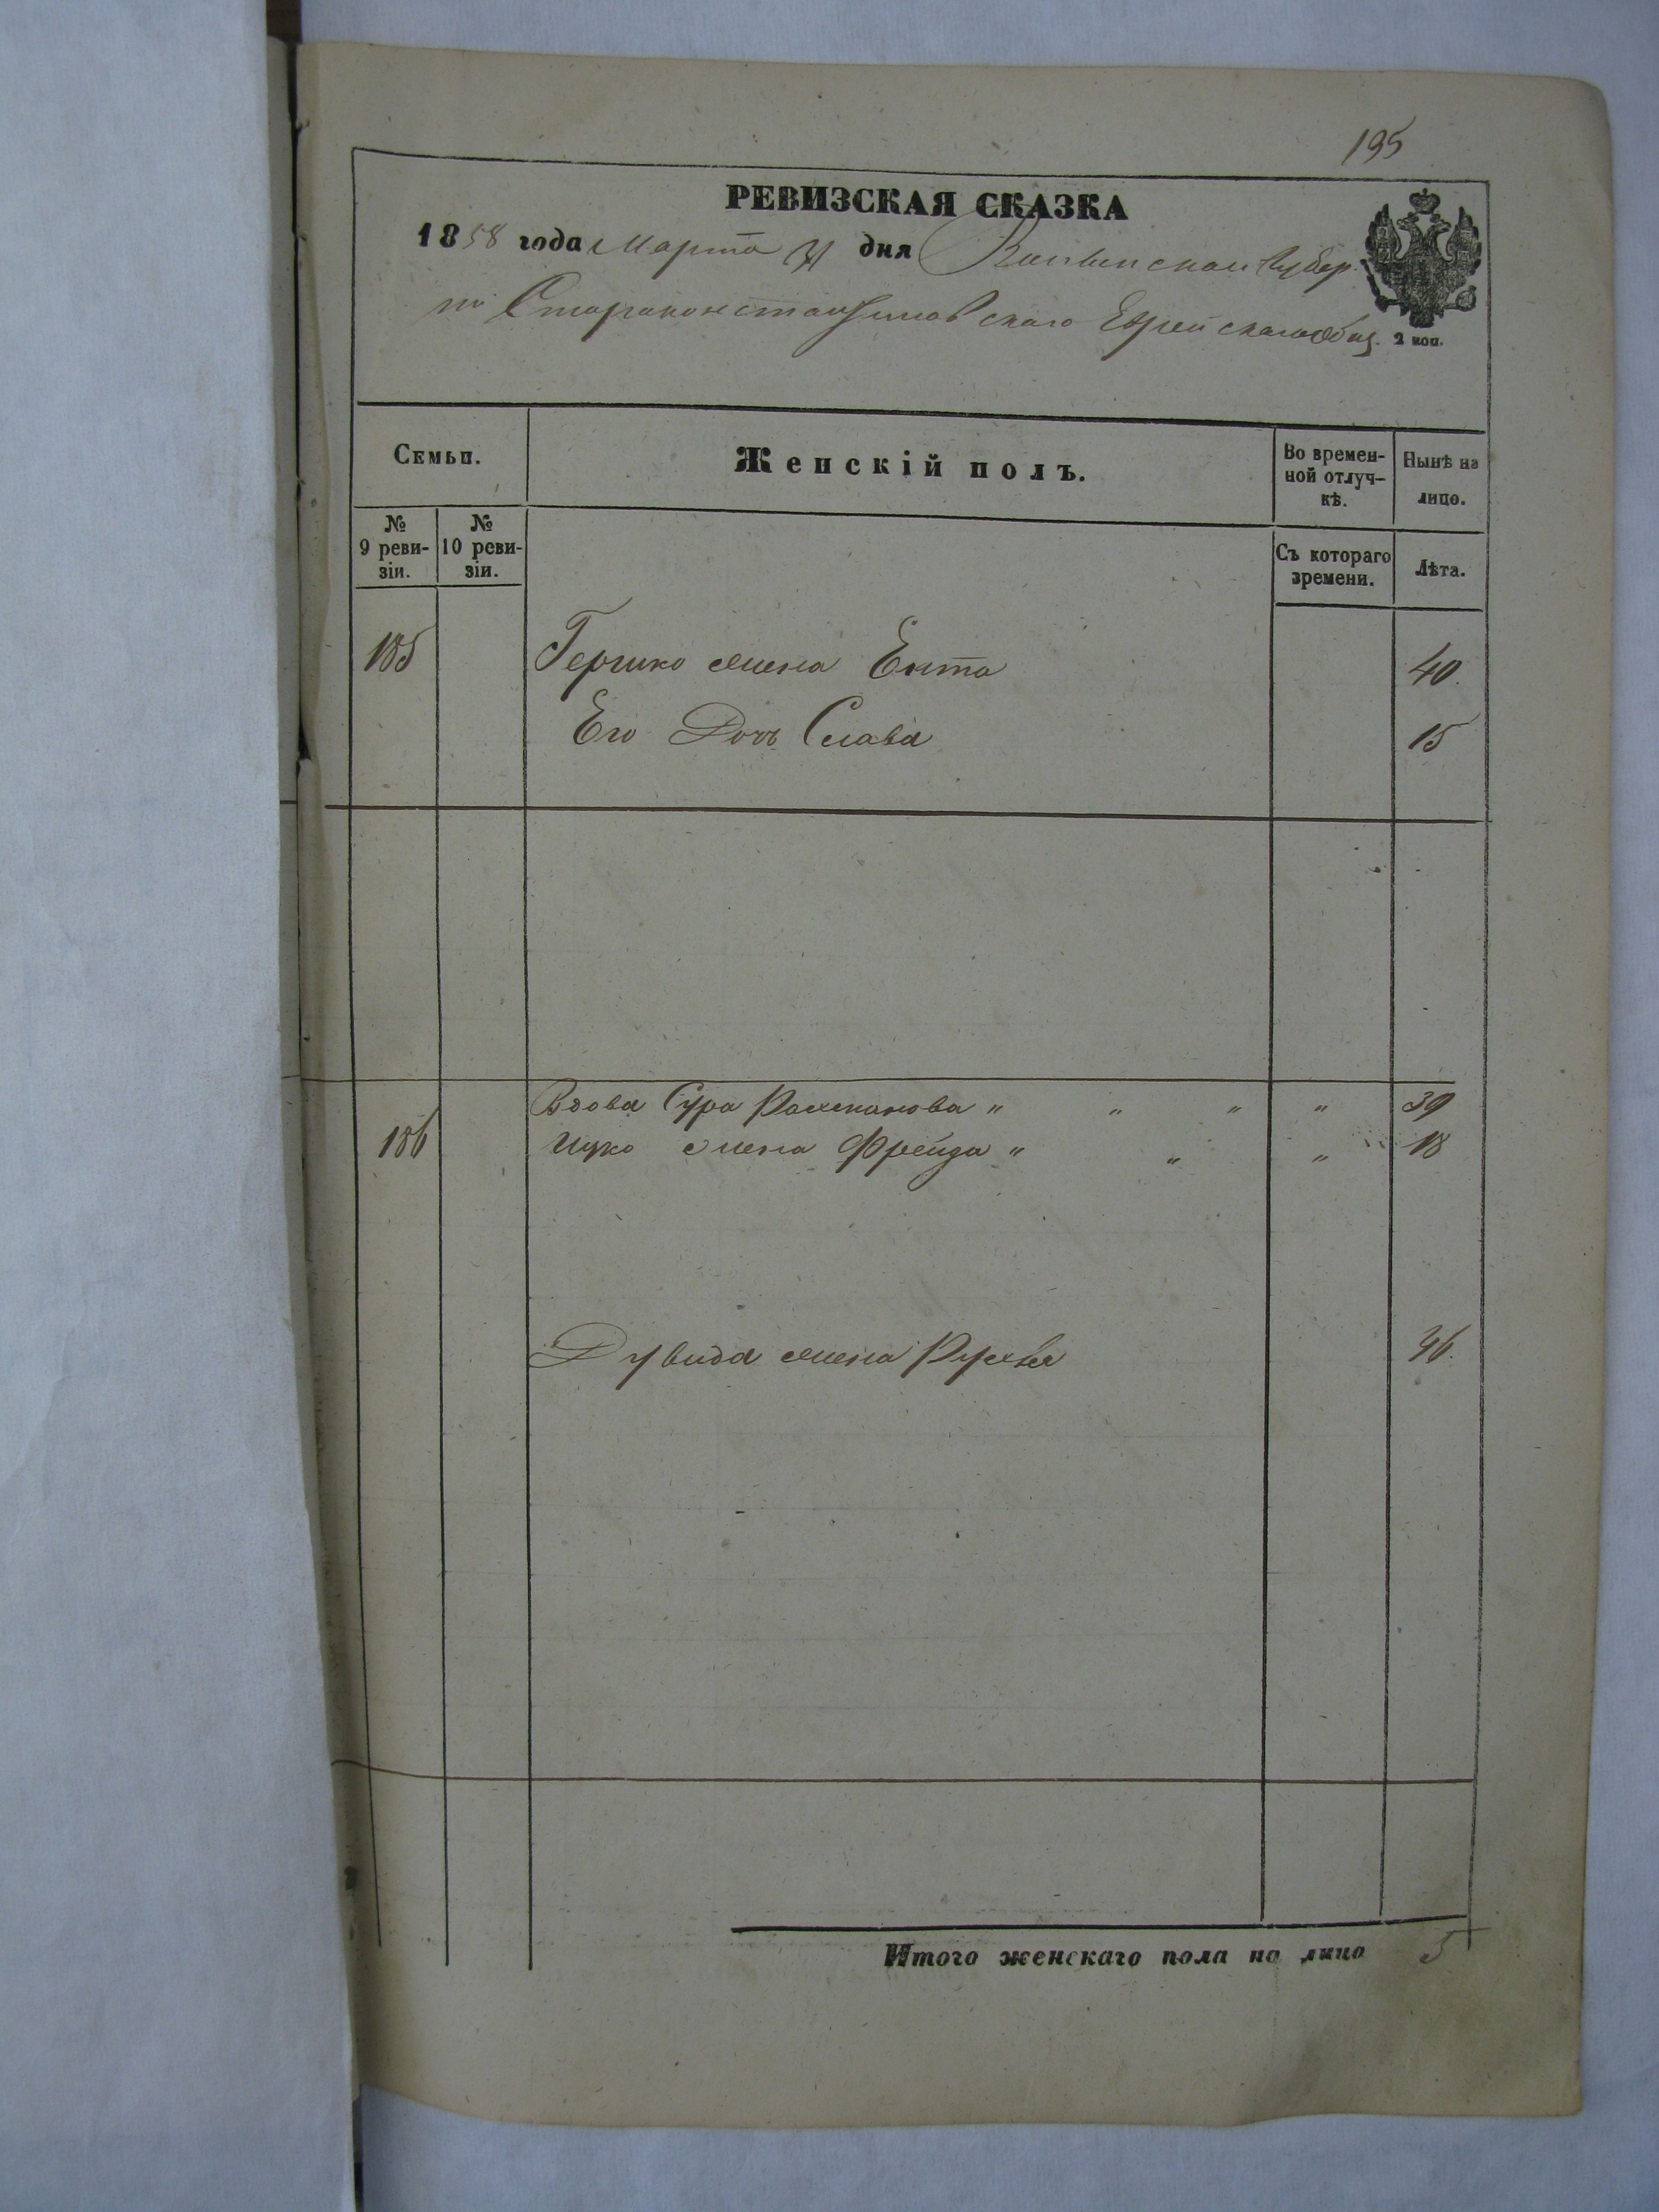 195
РЕВИЗСКАЯ СКАЗКА
1858 года Марта 31 дня Волынской Губер.
по Староконстантиновскаго Еврейскаго Общ.
2 коп.
Семьи. Женскій полъ. Во времен- Нынѣ на
ной отлуч- лицо.
кѣ.
№ №
9 реви- 10 реви- Съ котораго Лѣта.
зіи. зіи. времени.
185 Гершко жена Ента 40.
Его Дочь Слава 15
Вдова Сура Рахманова " " " " 39
186 Ицко жена Фрейда " " " 18
Дувида жена Рухля 46.
Итого женскаго пола на лицо 5